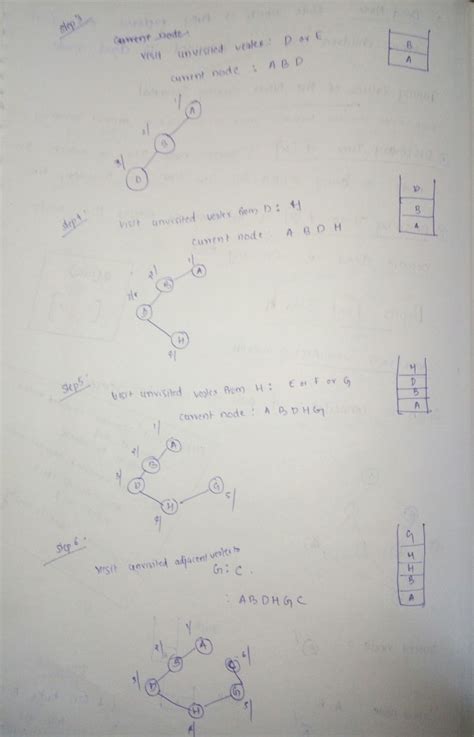 Step 3
current node.
visit unvisited vertex: D or E
current node : A B D
B
A
1/
A
2/
B
3/
D
Step 4:
visit unvisited vertex from D: H
current node : A B D H
D
B
A
1/
A
2/
B
3/
D
H
4/
Step 5:
visit unvisited vertex from H: E or F or G
current node : A B D H G
H
D
B
A
1/
A
2/
B
3/
D
H
4/
G
5/
Step 6:
visit unvisited adjacent vertex to
G: C.
: A B D H G C
G
H
H
B
A
1/
A
2/
B
3/
D
H
4/
G
5/
C
6/